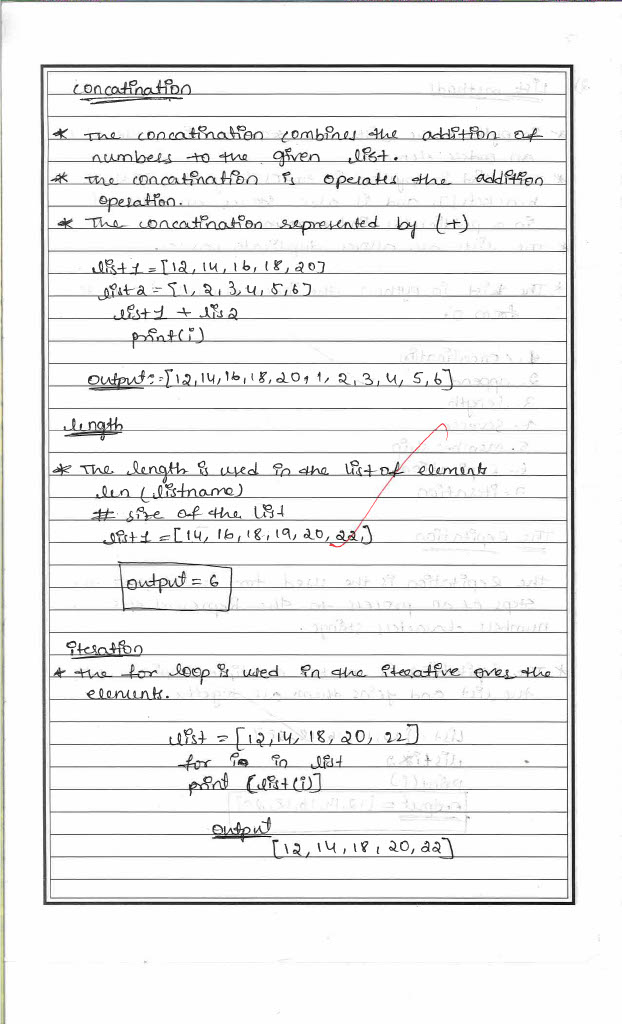 concatination
* The concatination combines the addition of
numbers to the given list.
* The concatination is operates the addition
operation.
* The concatination represented by (+)
list 1 = [12, 14, 16, 18, 20]
list 2 = [1, 2, 3, 4, 5, 6]
list 1 + lis 2
print(i)
output:-[12, 14, 16, 18, 20, 1, 2, 3, 4, 5, 6]
length
* The length is used in the list of elements
len (listname)
# size of the list
list 1 = [14, 16, 18, 19, 20, 22,]
output = 6
iteration
* the for loop is used in the iterative over the
elements.
list = [12, 14, 18, 20, 22]
for in list
print [list(i)]
output
[12, 14, 18, 20, 22]